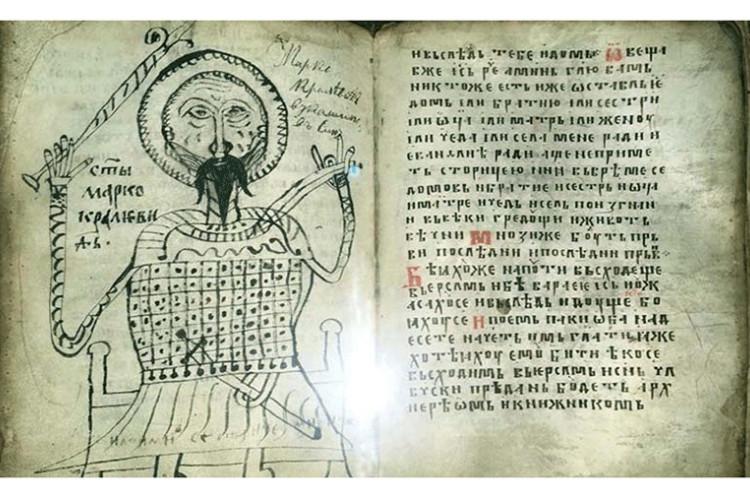 Марко
с҃ты
марко
кралеви
и вьслѣдь тебе идомь Ѿвеща
вже іс҃ь ре аминь гл҃ю вамь
никтоже есть иже ѡставль е
домь или братию или сестри
или ѡца или матрь или женоу
или чеда или села мене ради и
ради аще не приме
ть сторицею н҃ни вь врѣме се
домовь и братие и сестрь и ѡца
и матре и чедь и сель по изгнан
и и вь вѣки гредоущи и животь
вѣчни Мнози же боуть прь
ви послѣдни и послѣдни прьв
Бѣхоу же на поути вьсходеще
вь ерс҃мь и бѣ вараее іс҃ь и оуж
асахоу се и вь слѣдь идоуще бо
ꙗхоу се И поемь паки ѡба над
есете начеть имь гл҃ати иже
хотѣхоу емоу бити ѣко се
вьсходимь вь ерс҃мь и сн҃ь чл
вуски прѣдань боудеть арх
иерѣѡмь и книжникомь